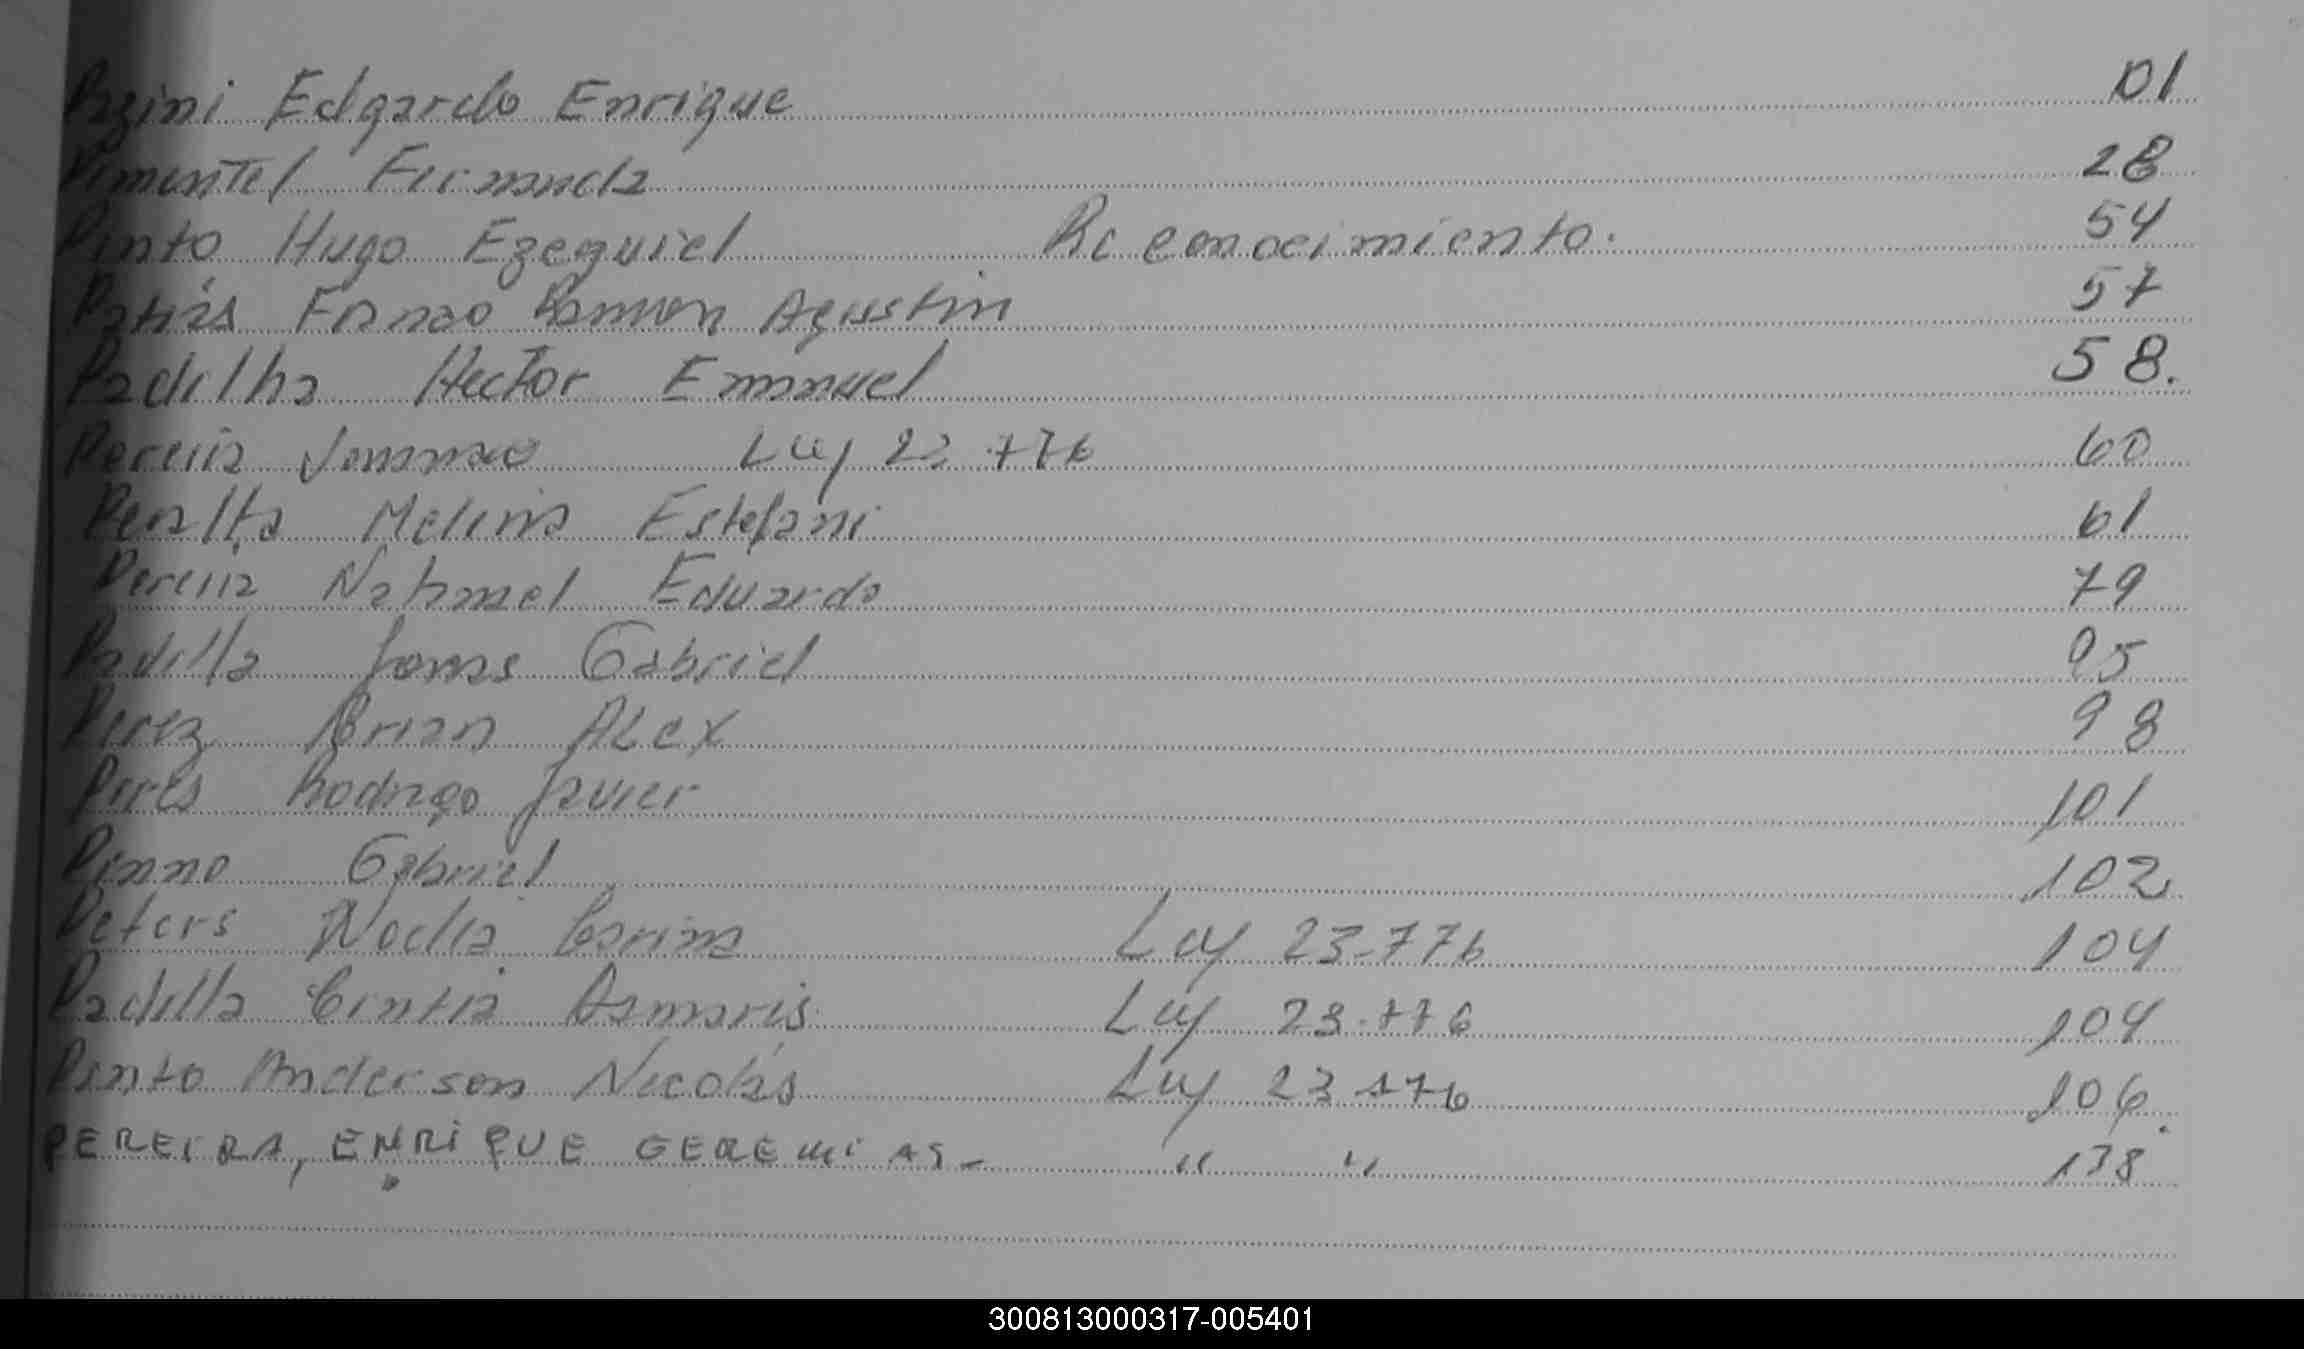 Pazini Edgardo Enrique 01
Pimentel Fernanda 28
Pinto Hugo Ezequiel Reconocimiento. 54
Franco Ramon Agustin 57
Padilha Hector Emanuel 58.
Pereira Ley 23.776 60
Peralta Melina Estefani 61
Pereira Natanael Eduardo 79
Padilla Jonas Gabriel 95
Perez Brian Alex 98
Pires Rodrigo Javier 101
Pinno Gabriel 102
Peters Nadia Carina Ley 23.776 104
Padilla Cintia Damaris Ley 23.776 104
Pinto Anderson Nicolás Ley 23.776 106.
PEREIRA, ENRIQUE GEREMIAS- " " 138
300813000317-005401